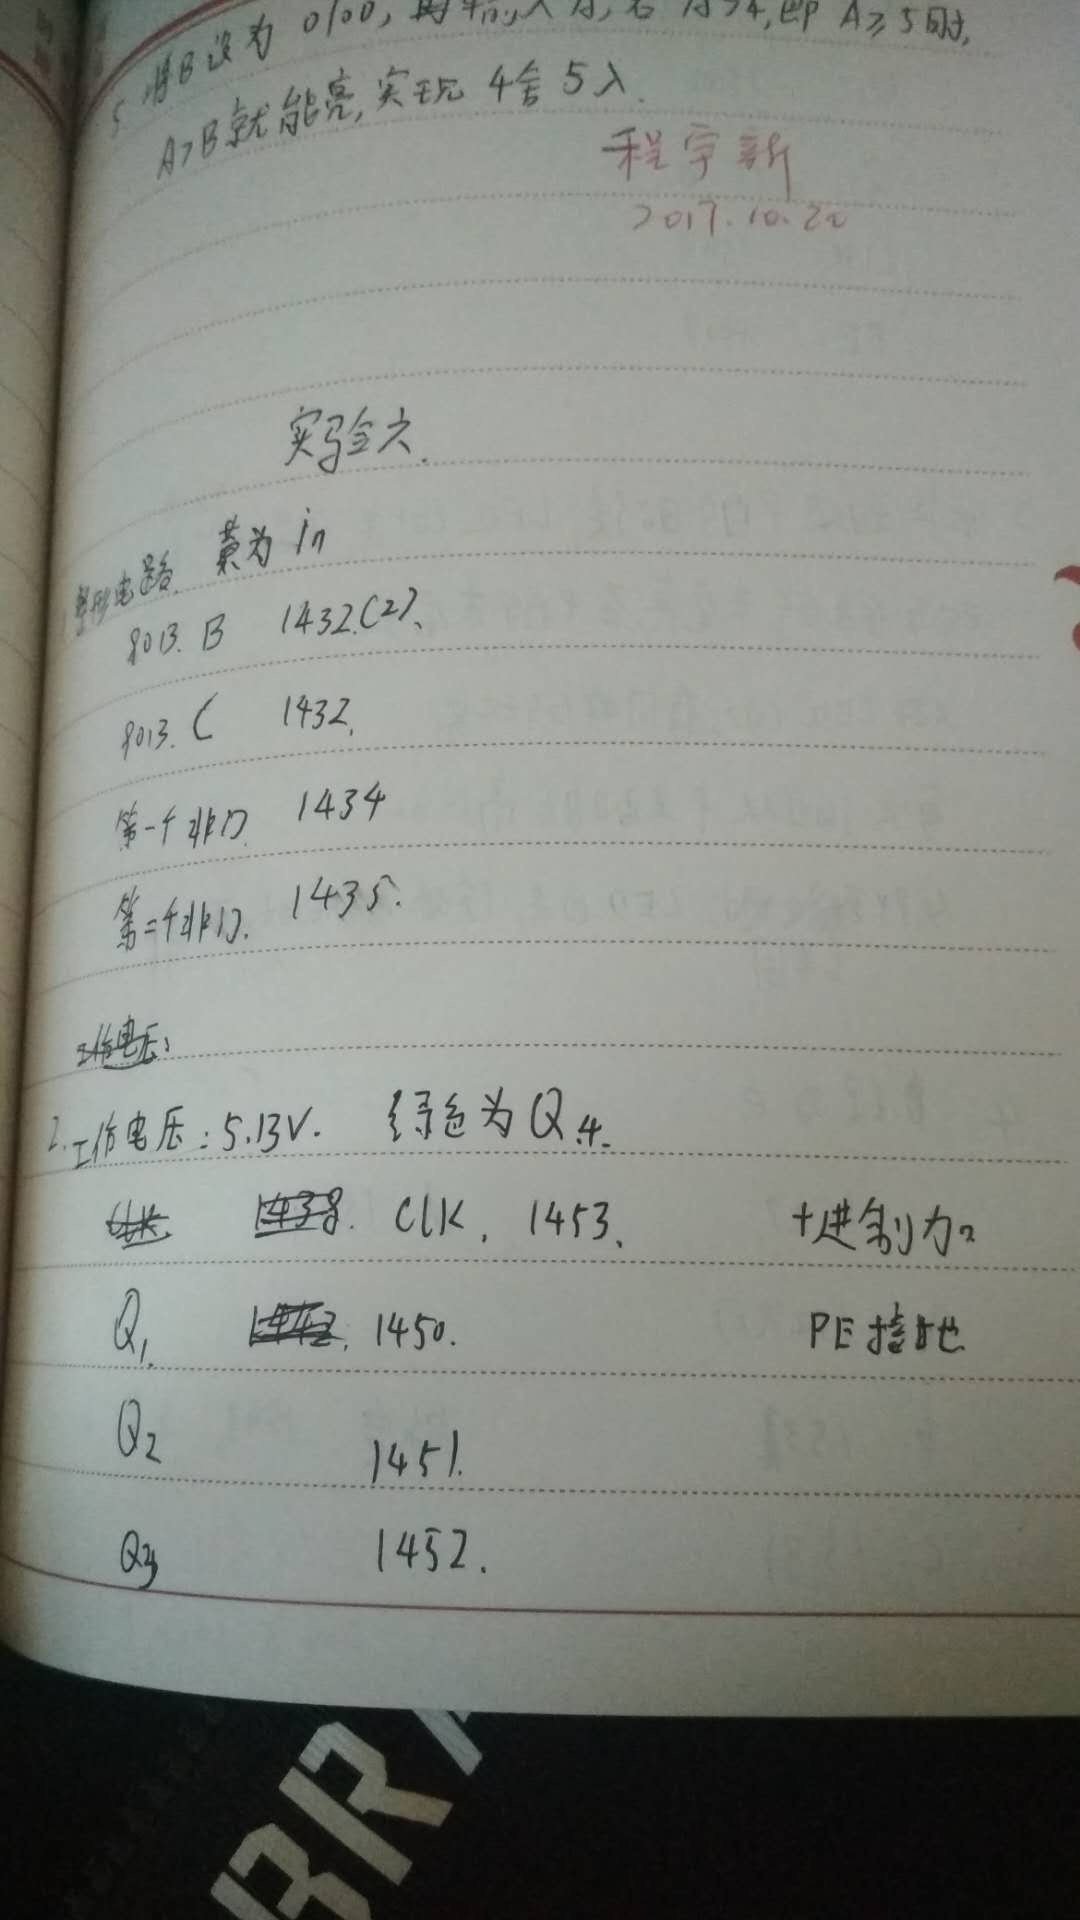 5 将B设为 0100, 再输入A, 若A>4, 即 A≥5时,
A>B就能亮, 实现 4舍5入.
程宇新
2017.10.20
实验六.
整形电路. 黄为 in
8013. B 1432.(2).
8013. C 1432.
第一个非门. 1434
第二个非门. 1435.
工作电压:
2. 工作电压: 5.13V. 绿色为 Q4.
CLK, 1453. 十进制
Q1. 1450. PE接地
Q2 1451.
Q3 1452.
BRA